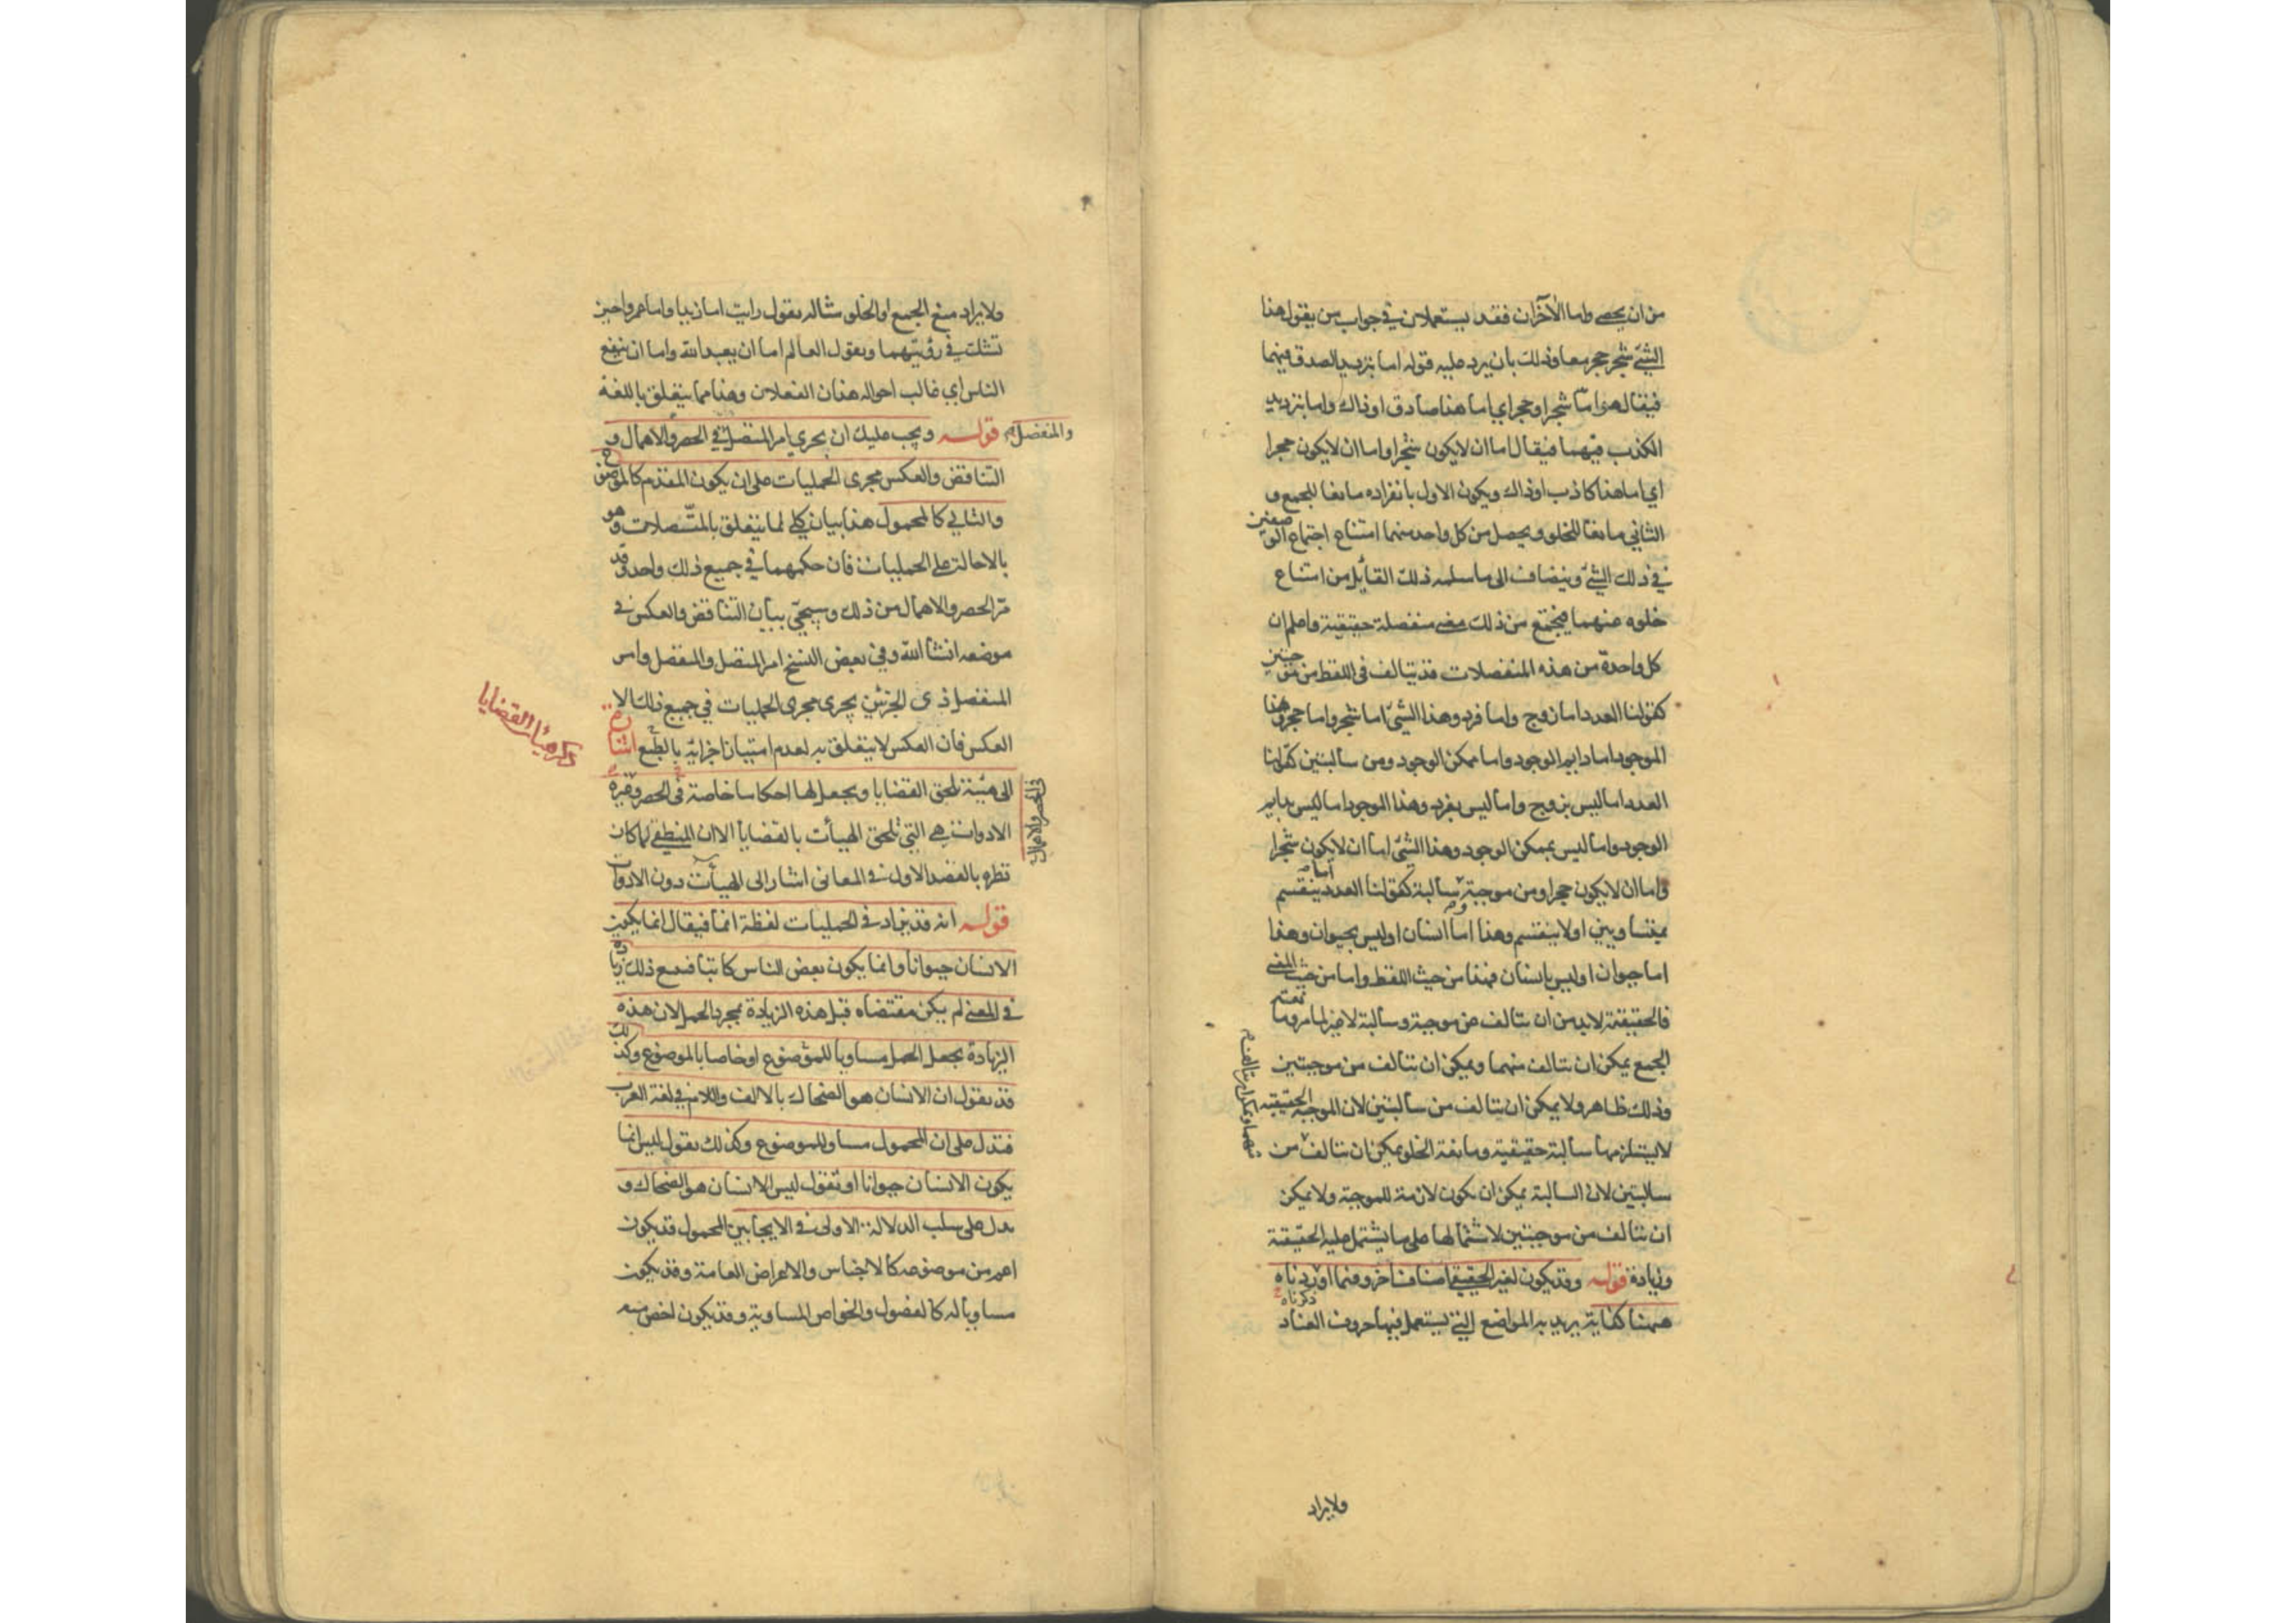 من ان يحصى واما الآخران فقد يستعملان في جواب من يقول هذا
الشئ شجر حجر معا وذلك بان يرد عليه قوله اما بترديد الصدق فيهما
فيقال هو اما شجر او حجر اي اما هذا صادق او ذاك واما بترديد
الكذب فيهما فيقال اما ان لا يكون شجرا واما ان لا يكون حجرا
اي اما هذا كاذب او ذاك ويكون الاول بانفراده مانعا للجمع و
الثاني مانعا للخلو ويحصل من كل واحد منهما امتناع اجتماع الوصفين
في ذلك الشئ وينضاف الى ما سلمه ذلك القائل من امتناع
خلوه عنهما فيجتمع من ذلك معنى منفصلة حقيقية واعلم ان
كل واحدة من هذه المنفصلات قد يتالف في اللفظ من موجبتين
كقولنا العدد اما زوج واما فرد وهذا الشئ اما شجر واما حجر وهذا
الموجود اما دايم الوجود واما ممكن الوجود ومن سالبتين كقولنا
العدد اما ليس بزوج واما ليس بفرد وهذا الموجود اما ليس بدايم
الوجود واما ليس بممكن الوجود وهذا الشئ اما ان لا يكون شجرا
واما ان لا يكون حجرا ومن موجبة وسالبة كقولنا العدد اما ينقسم
بمتساويين او لا ينقسم وهذا اما انسان او ليس بحيوان وهذا
اما حيوان او ليس بانسان فهذا من حيث اللفظ واما من حيث المعنى
فالحقيقية لا بد من ان تتالف من موجبة وسالبة لا غير لما مر ومانعة
الجمع يمكن ان تتالف منهما ويمكن ان تتالف من موجبتين
وذلك ظاهر ولا يمكن ان تتالف من سالبتين لان الموجبة الحقيقية
لا يستلزمها سالبة حقيقية ومانعة الخلو يمكن ان تتالف من
منهما ويمكن ان تتالف
سالبتين لان السالبة يمكن ان يكون لازمة للموجبة ولا يمكن
ان تتالف من موجبتين لاشتمالها على ما يشتمل عليه الحقيقة
وزيادة قوله وقد يكون لغير الحقيقي اصناف اخر وفيما اوردناه
ذكرناه
ههنا كفاية يريد به المواضع التي تستعمل فيها حروف العناد
ولا يراد
ولا يراد منع الجمع او الخلو مثاله يقول رايت اما زيدا واما عمروا حين
تشكك في رؤيتهما ويقول العالم اما ان يعبد الله واما ان ينفع
الناس اي غالب احواله هذان الفعلان وهذا مما يتعلق باللغة
قوله ويجب عليك ان يجري امر المتصل في الحصر والاهمال و
والمنفصل
التناقض والعكس مجرى الحمليات على ان يكون المقدم كالموضوع
والتالي كالمحمول هذا بيان كلي لما يتعلق بالمتصلات وهو
بالاحالة على الحمليات فان حكمهما في جميع ذلك واحد وقد
مر الحصر والاهمال من ذلك وسيجئ بيان التناقض والعكس في
موضعه انشا الله وفي بعض النسخ امر المتصل والمنفصل وامر
المنفصل ذي الجزئين يجرى مجرى الحمليات في جميع ذلك الا
العكس فان العكس لا يتعلق به لعدم امتياز اجزائه بالطبع اشارة
ذكر هيئات القضايا
الى هيئة تلحق القضايا ويجعل لها احكاما خاصة في الحصر وغيره
في الحصر والاهمال
الادوات هي التي تلحق الهيآت بالقضايا الا ان المنطقي لما كان
نظره بالقصد الاول في المعاني اشار الى الهيآت دون الادوات
قوله انه قد يزاد في الحمليات لفظة انما فيقال انما يكون
الانسان حيوانا وانما يكون بعض الناس كاتبا فيتبع ذلك زيادة
في المعنى لم يكن مقتضاه قبل هذه الزيادة بمجرد الحمل لان هذه
الزيادة يجعل الحمل مساويا للموضوع او خاصا بالموضوع وكذلك
قد يقول ان الانسان هو الضحاك بالالف واللام في لغة العرب
فتدل على ان المحمول مساو للموضوع وكذلك يقول ليس انما
يكون الانسان حيوانا او تقول ليس الانسان هو الضحاك و
يدل على سلب الدلالة الاولى في الايجابين المحمول قد يكون
اعم من موضوعه كالاجناس والاعراض العامة وقد يكون
مساويا له كالفصول والخواص المساوية وقد يكون اخص منه